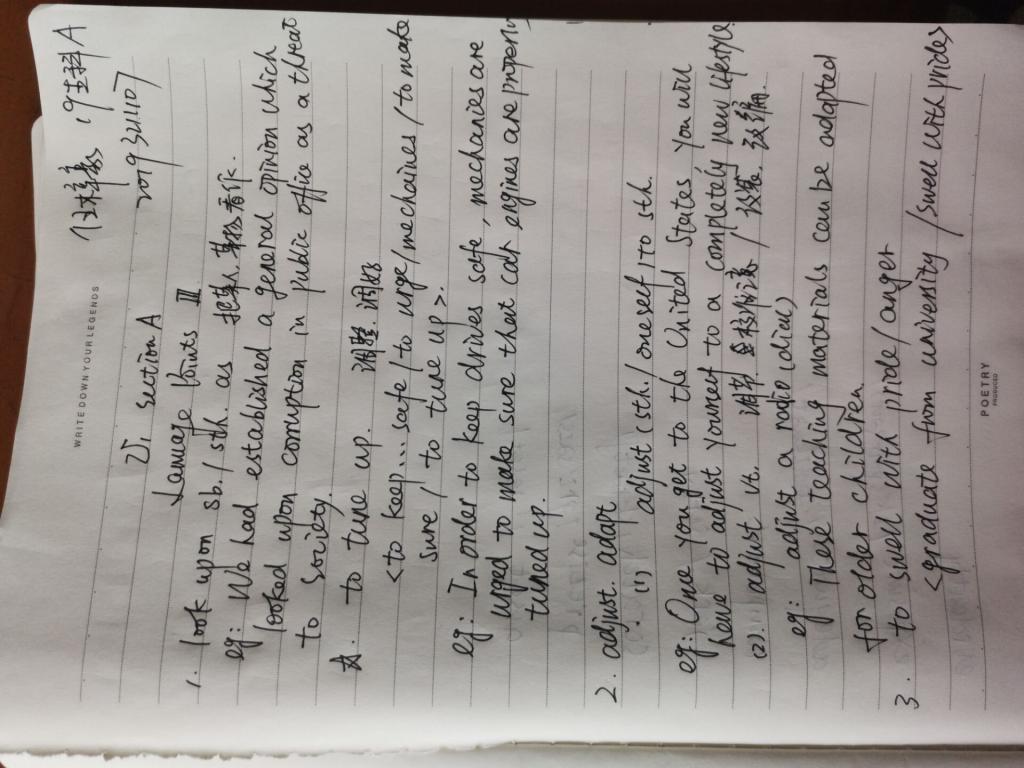 19生科A
2019321107
WRITE DOWN YOUR LEGENDS
U1, section A
Lanuage Points III
1. look upon sb./sth. as 把某人某物看作.
eg: We had established a general opinion which
looked upon corruption in public office as a threat
to society.
☆. to tune up. 调整 调好
<to keep...safe/to urge/mechaines/to make
sure/to tune up>.
eg: In order to keep drives safe, mechanies are
urged to make sure that cat engines are properly
tuned up.
2. adjust. adapt
(1) adjust (sth./oneself) to sth.
eg: One you get to the United States, you will
have to adjust yourself to a completely new lifestyle.
(2). adjust vt. 调节 /改编
eg: adjust a radio (dial)
These teaching materials can be adapted
for older children.
3. to swell with pride/anger
<graduate from university /swell with pride>
POETRY
PRODUCED